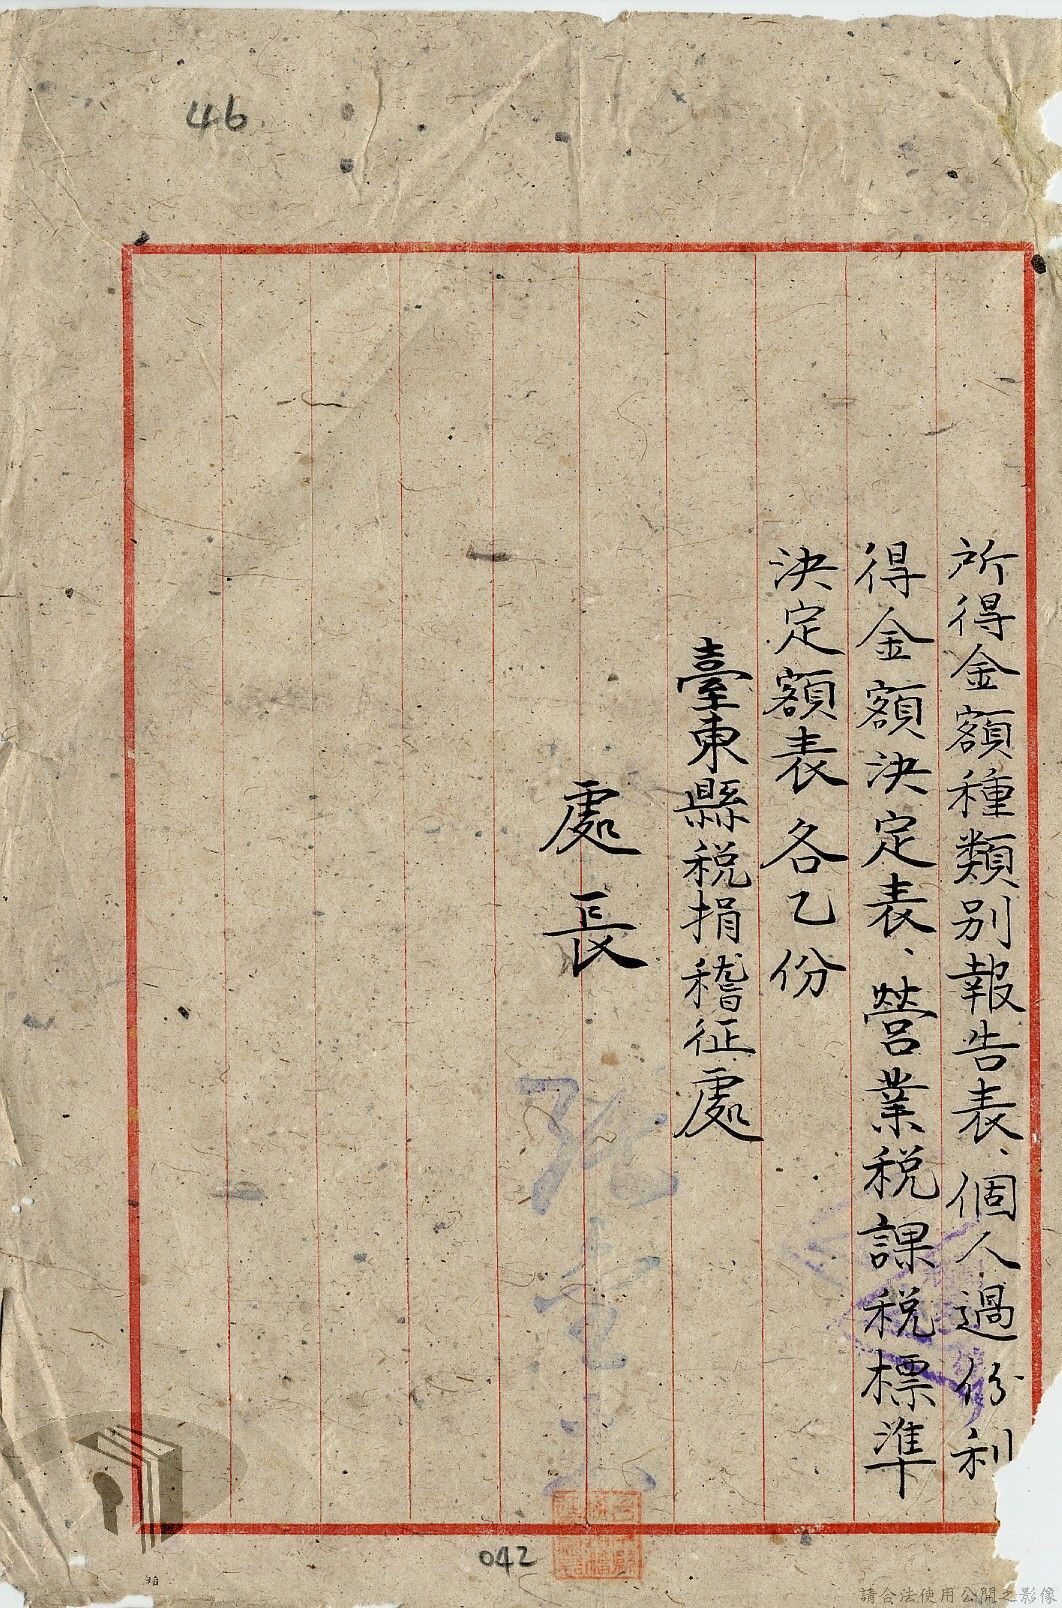 46
所得金額種類別報告表、個人過份利
得金額決定表、營業稅課稅標準
決定額表各乙份
臺東縣稅捐稽征處
處長
042
請合法使用公開之影像